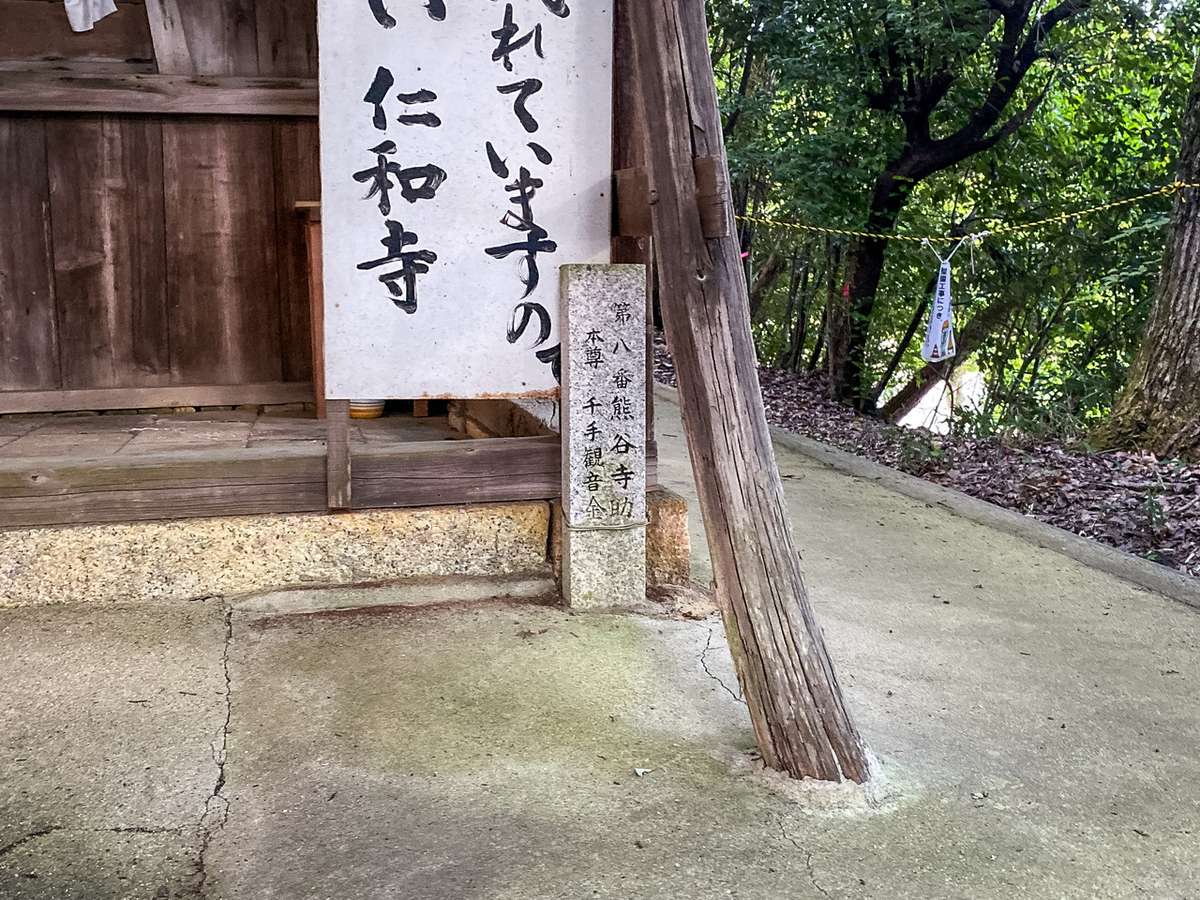 れていますので
い 仁和寺
第八番熊谷寺助
本尊 千手観音
整備工事につき